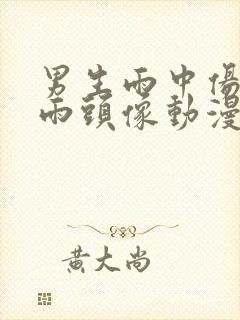 男生雨中傷
雨頭像動漫
黃大尚